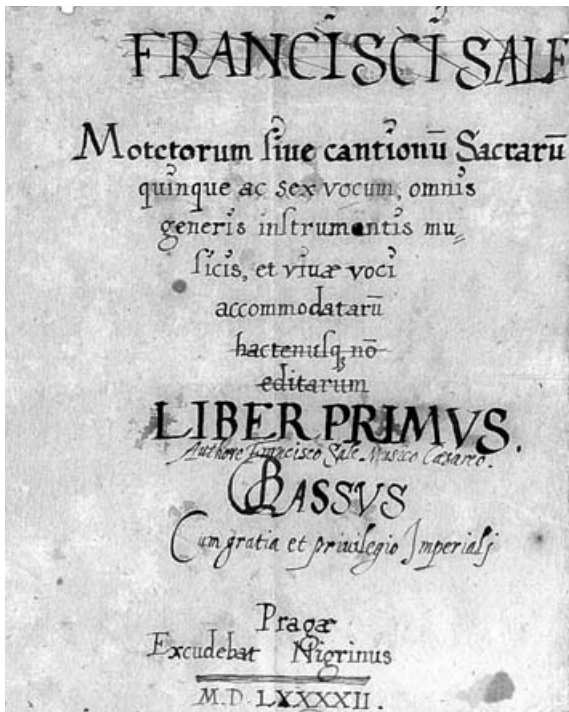 FRANCISCI SALE
Motetorum ſiue cantionū Sacrarū
quinque ac sex vocum, omnis
generis inſtrumentis mu⸗
ſicis, et viuæ voci
accommodatarū
hactenuſqꝫ nō
editarum
LIBER PRIMVS.
Authore Francisco Sale Musico Cæsareo.
BASSVS
Cum gratia et priuilegio Imperialj
Pragæ
Excudebat Nigrinus
M.D.LXXXXII.